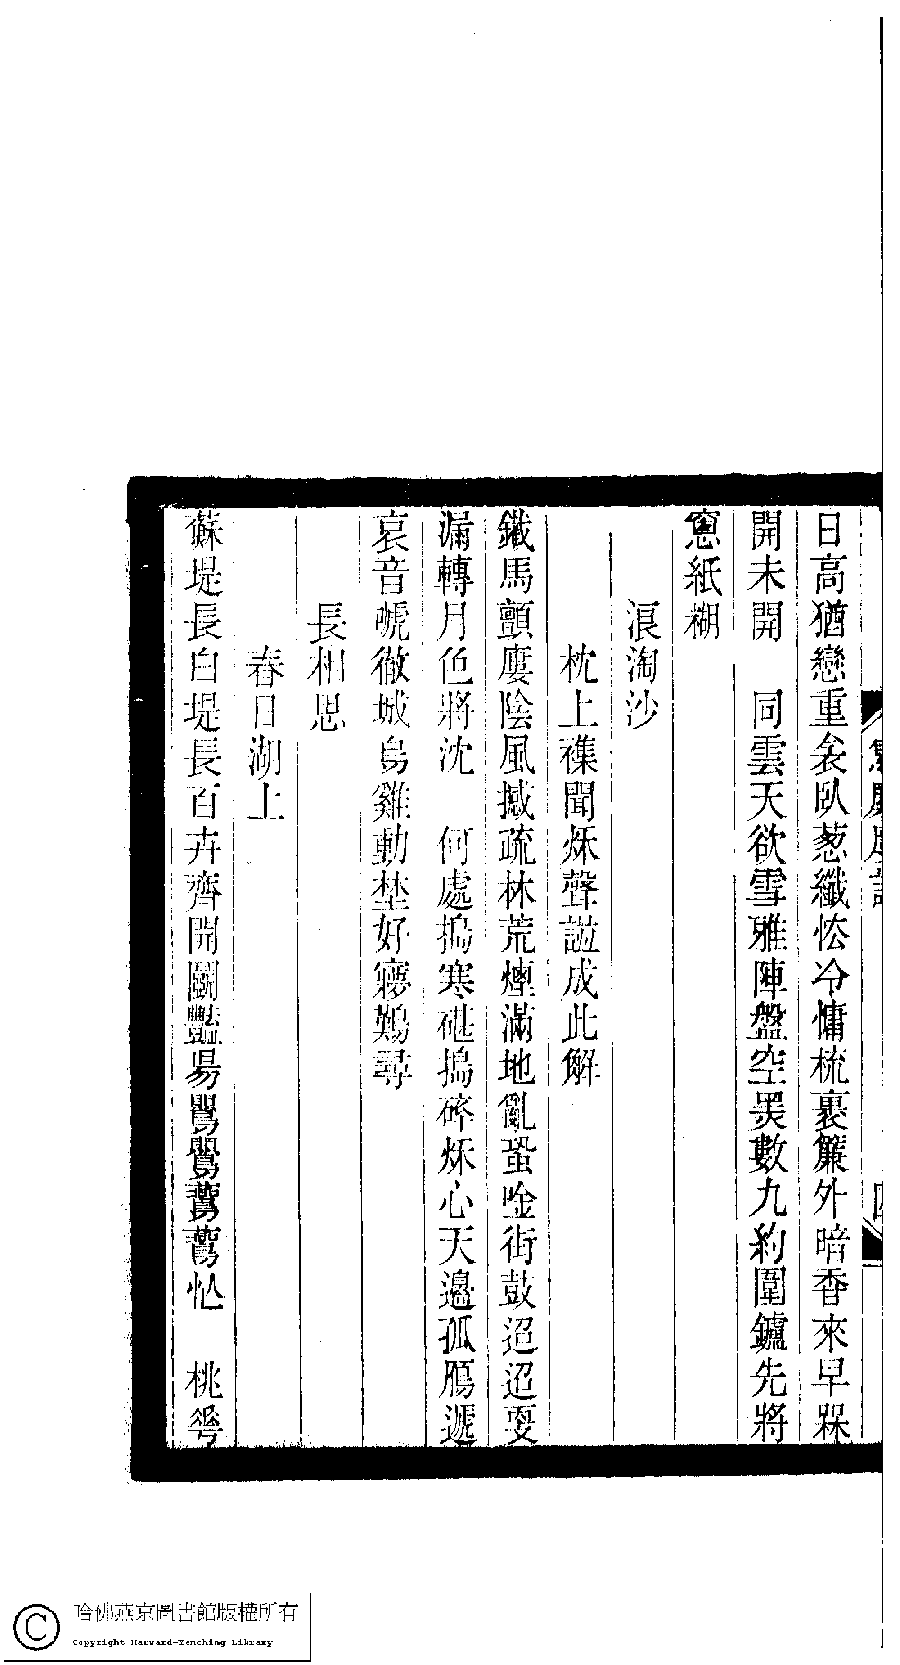 日高猶戀重衾臥蔥纖怯冷慵梳裹簾外暗香來早槑
開未開　同雲天欲雪雅陣盤空黑數九約圍鑪先將
窻紙糊
浪淘沙
枕上襍聞烁聲譜成此解
鐵馬顫廔陰風撼疏林荒煙滿地亂蛩唫街鼓迢迢耍
漏轉月色將沈　何處搗寒碪搗碎烁心天邊孤鴈遞
哀音唬徹城烏雞動埜好寢鷄尋
長相思
春日湖上
蘇堤長白堤長百卉齊開鬭豔昜鸎鸎鷰鷰忙　桃芎
哈佛燕京圖書館版權所有
Copyright Harvard-Yenching Library